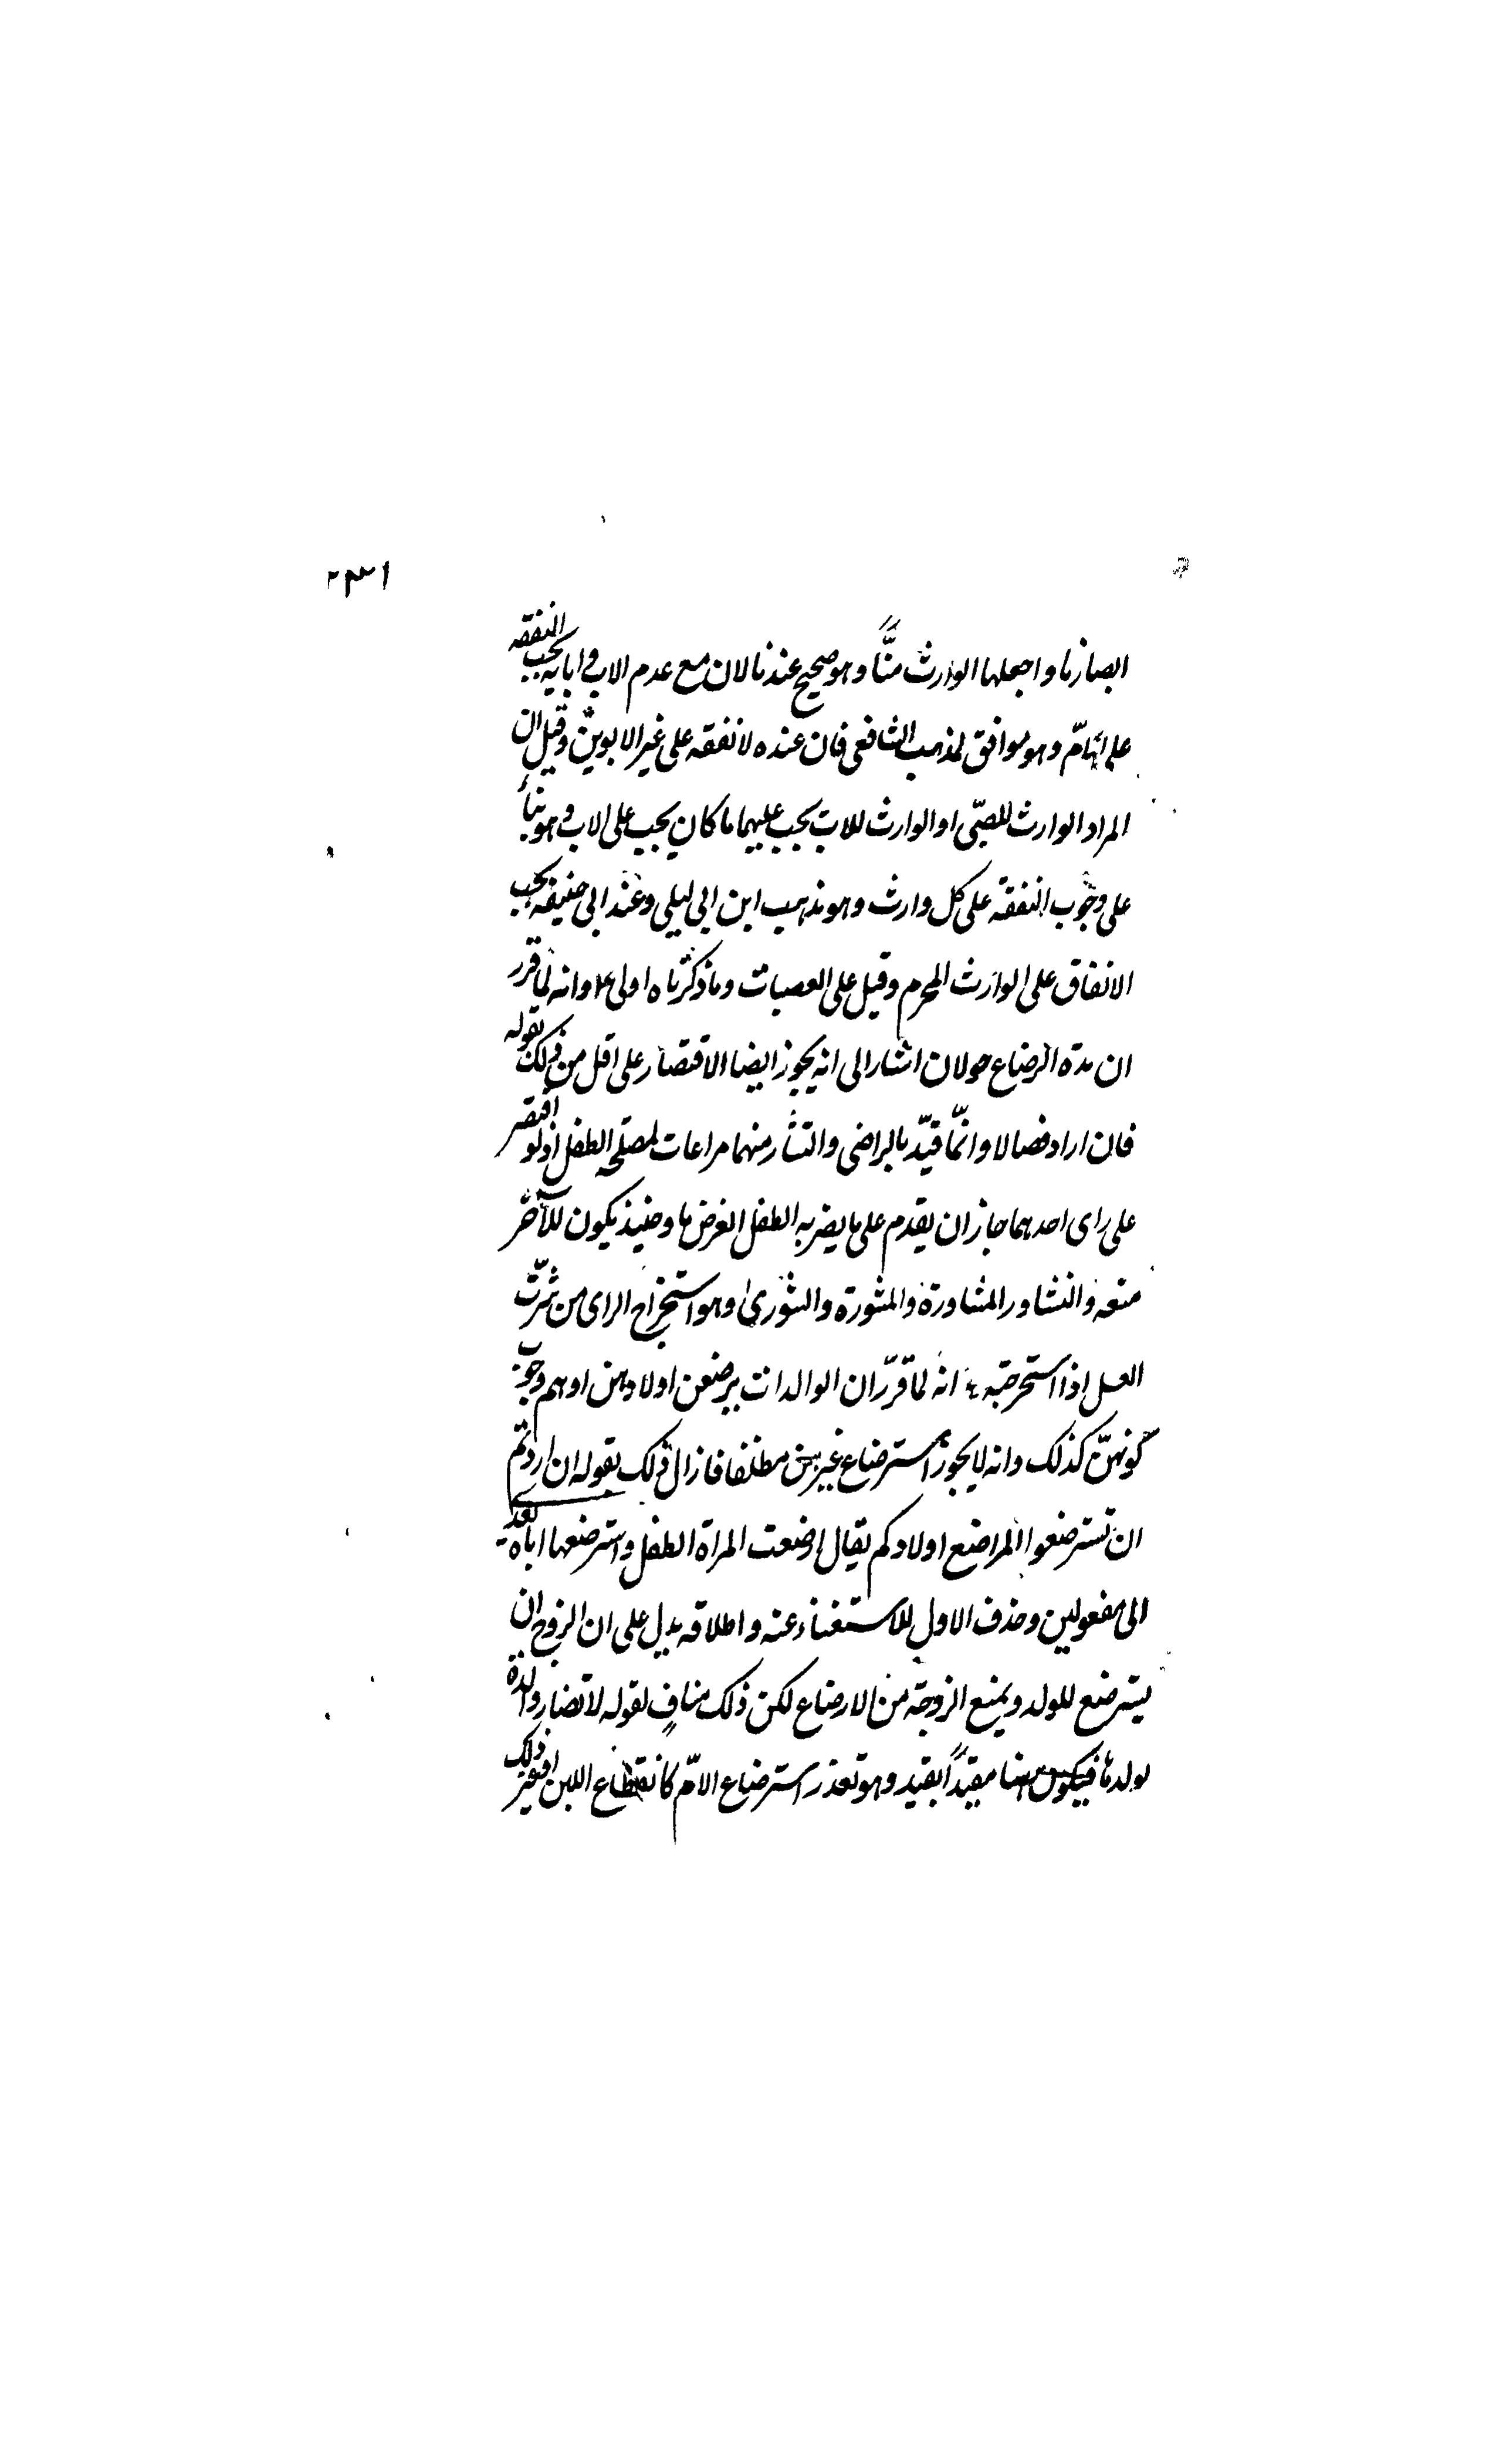 ابصارنا واجعلها الوارث منّا وهو صحيح عندنا لان مع عدم الاب وابايه يجب النفقه
على الامّ وهو موافق لمذهب الشافعى فان عنده لا نفقه على غير الابوين وقيل ان
المراد الوارث للصبّى او الوارث للاب يجب عليهما ما كان يجب على الاب وهو بناء
على وجوب النفقة على كل وارث وهو مذهب ابن ابى ليلى وعند ابى حنيفه يجب
الانفاق على الوارث المحرم وقيل على العصبات وما ذكرناه اولى وانه لما قرر
ان مدة الرضاع حولان اشار الى انه يجوز ايضا الاقتصار على اقل من ذلك بقوله
فان اراد فصالا وانّما قيّد بالراضى والتشار منهما مراعات لمصلحه الطفل اذ لو اقتصر
على راى احدهما جاز ان يقدم على ما يضر به الطفل لغرض ما وحينئذ يكون للآخر
منعه والتشاور المشاورة والمشورة والشورى وهو استخراج الراى من شرت
العسل اذا استخرجته انه لما قرّر ان الوالدات يرضعن اولادهن اوهم وجوب
كونهنّ كذلك وانه لا يجوز استرضاع غيرهن مطلقا فازال ذلك بقوله ان اردتم
ان تسترضعوا المراضع اولادكم يقال ارضعت المراة الطفل واسترضعها اياه تعدية
الى مفعولين وحذف الاول للاستغناء عنه واطلاقه يدل على ان الزوج ان
يسترضع للولد ويمنع الزوجة من الارضاع لكن ذلك مناف لقوله لا تضار والدة
بولدها فيكون هنا مقيدًا بقيد وهو تعذر استرضاع الامّ كانقطاع اللبن ذلك